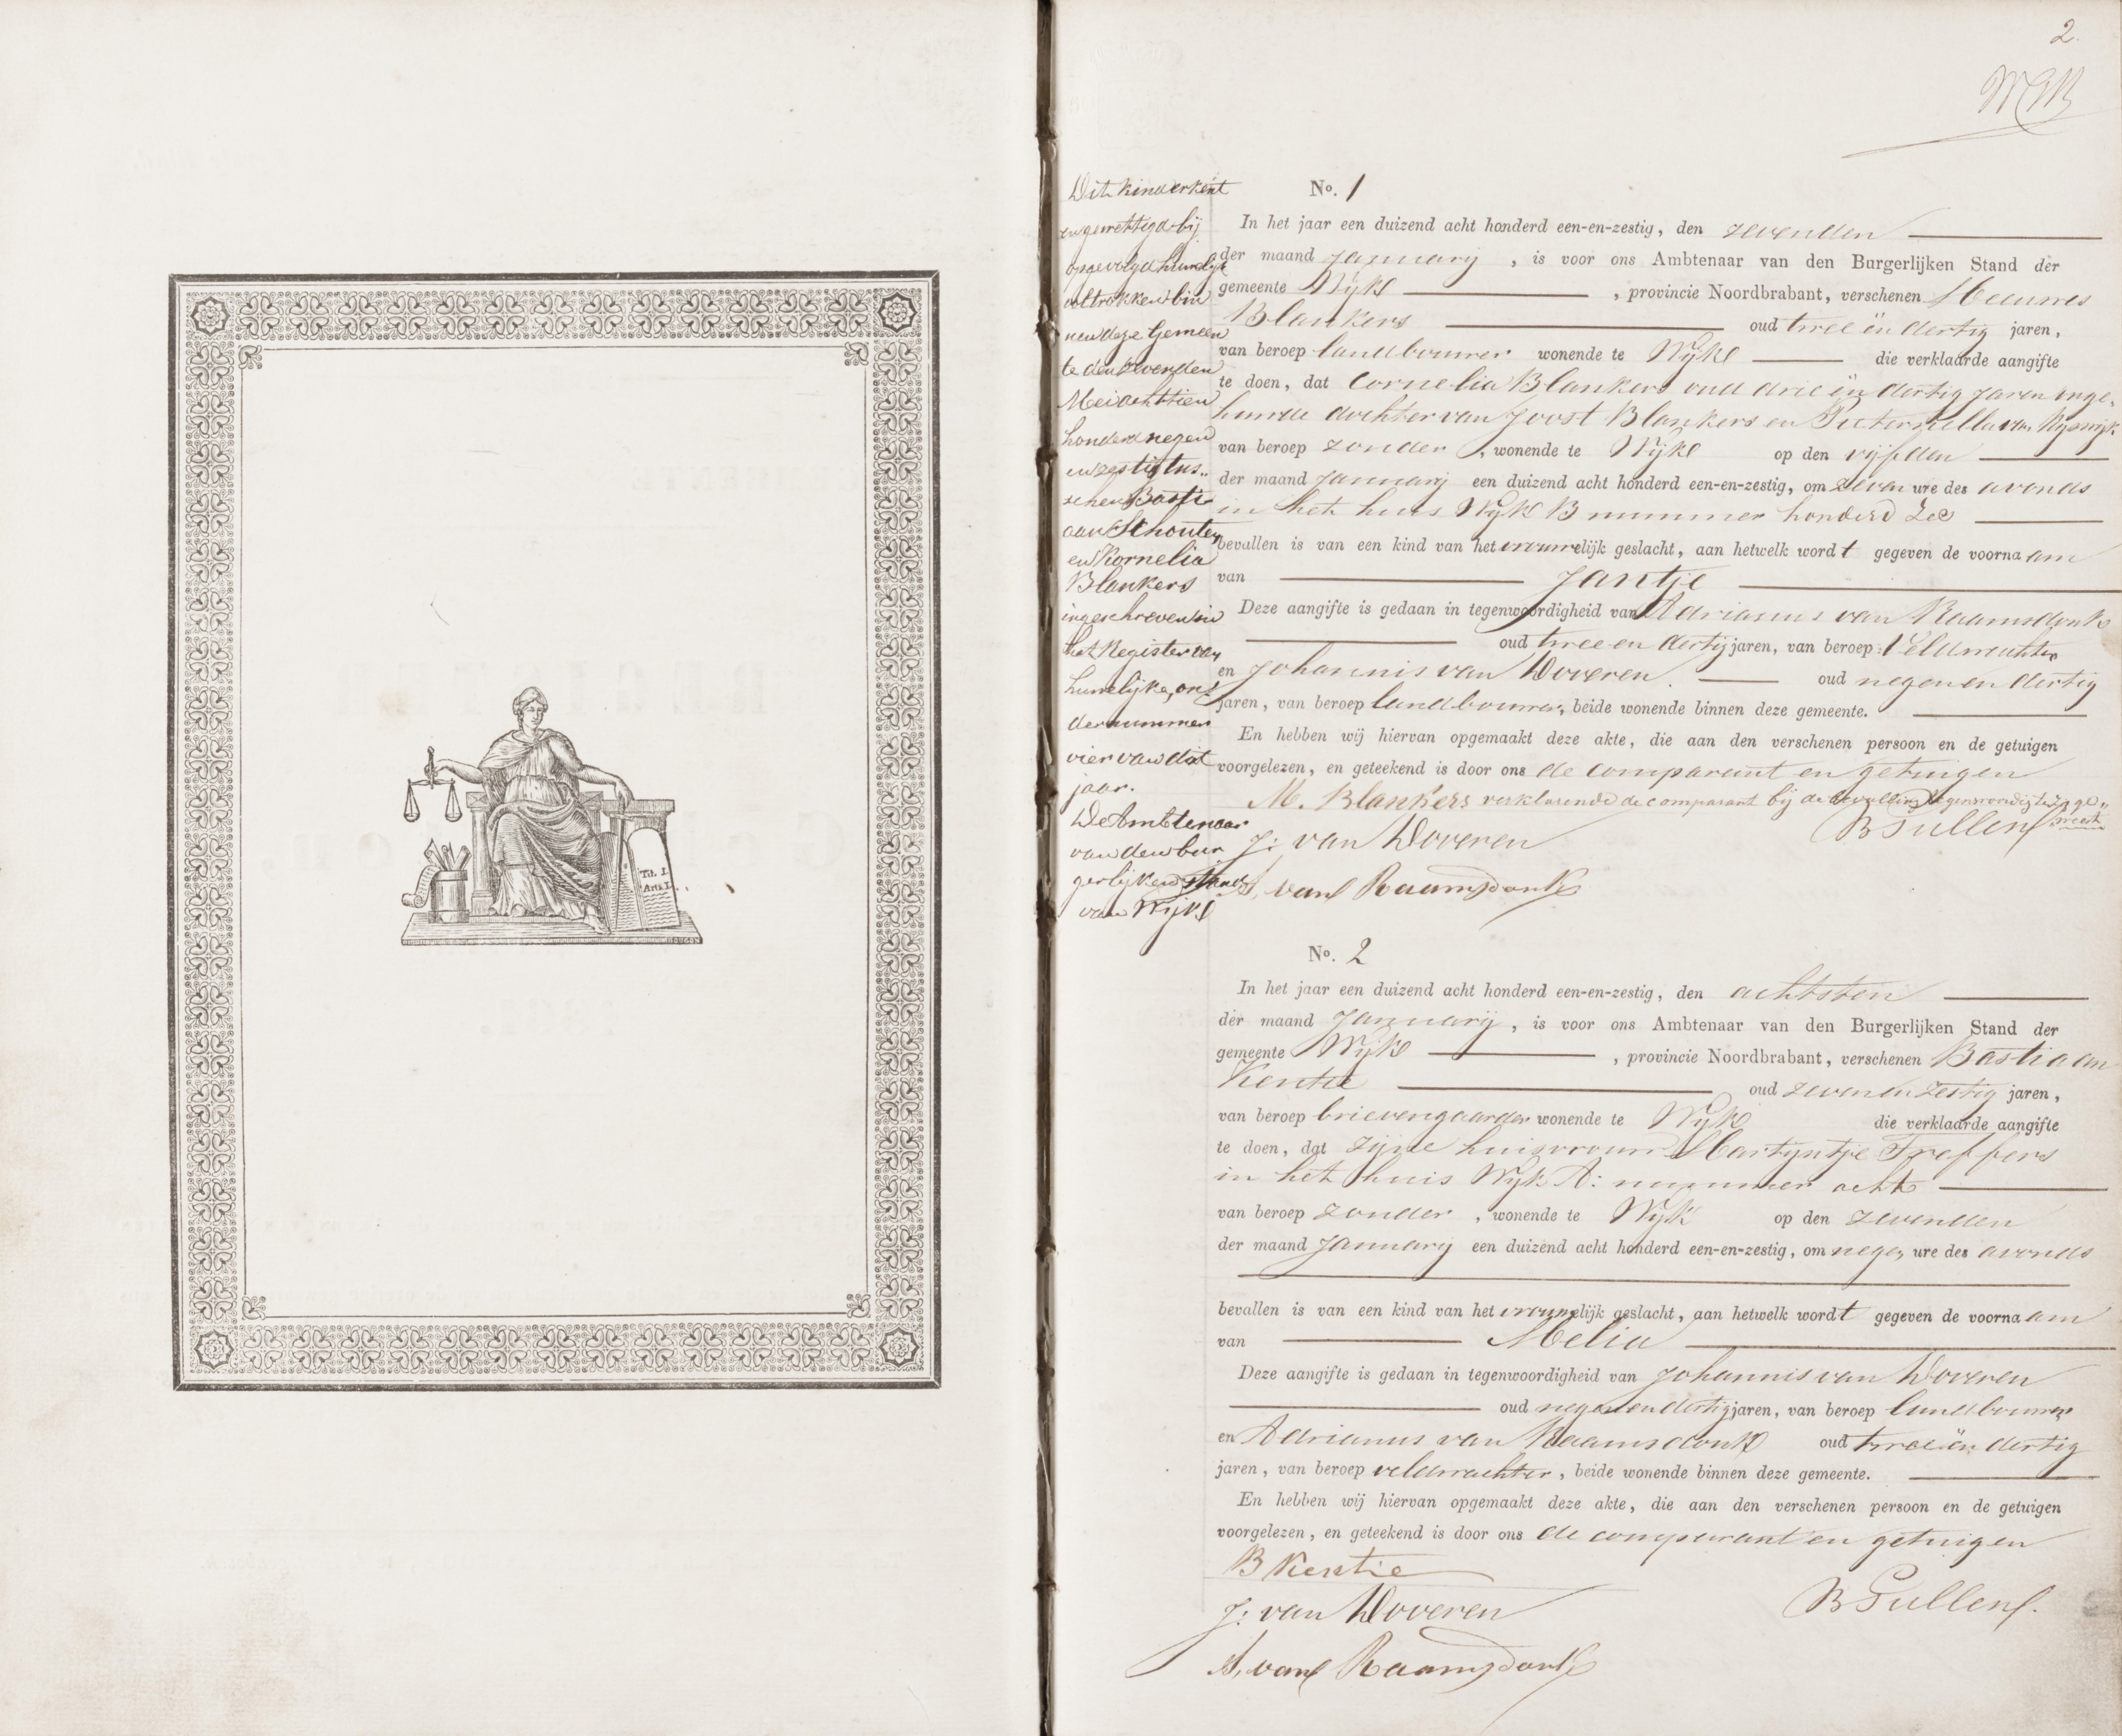 Tit. I.
Art. I.
2.
Dit kind erkent
en gewettigd bij
opgevolgd huwelijk
voltrokken bin
nen deze Gemeen
te den zevenden
Mei achttien
honderd negen
en zestig tus„
schen Basti
aan Schouten
en Kornelia
Blankers
ingeschreven in
het Register van
huwelijke, on„
der nummer
vier van dit
jaar.
De Ambtenaar
van den bur
gerlijken stand
van Wijk
No. 1
In het jaar een duizend acht honderd een-en-zestig, den zevenden
der maand January, is voor ons Ambtenaar van den Burgerlijken Stand der
gemeente Wijk, provincie Noordbrabant, verschenen Meeuwes
Blankers oud twee ën dertig jaren,
van beroep landbouwer wonende te Wijk die verklaarde aangifte
te doen, dat Cornelia Blankers oud drie ën dertig jaren onge„
huwde dochter van Joost Blankers en Pieternella van Wijngaard
van beroep zonder, wonende te Wijk op den vijfden
der maand January een duizend acht honderd een-en-zestig, om zeven ure des avonds
in het huis Wijk B nummer honderd zes
bevallen is van een kind van het vrouwelijk geslacht, aan hetwelk wordt gegeven de voornaam
van Jantje
Deze aangifte is gedaan in tegenwoordigheid van Adrianus van Raamsdonk
oud twee en dertig jaren, van beroep Veldwachter
en Johannis van Doveren oud negen en dertig
jaren, van beroep landbouwer, beide wonende binnen deze gemeente.
En hebben wij hiervan opgemaakt deze akte, die aan den verschenen persoon en de getuigen
voorgelezen, en geteekend is door ons de comparant en getuigen
M. Blankers verklarende de comparant bij de bevalling tegenwoordig te zijn ge„
weest
J: van Doveren
A. van Raamsdonk
No. 2
In het jaar een duizend acht honderd een-en-zestig, den achtsten
der maand January, is voor ons Ambtenaar van den Burgerlijken Stand der
gemeente Wijk, provincie Noordbrabant, verschenen Bastiaan
Kentie oud zeven en zestig jaren,
van beroep brievengaarder wonende te Wijk die verklaarde aangifte
te doen, dat zijne huisvrouw Martijntje Treffers
in het huis Wijk A: nummer acht
van beroep zonder, wonende te Wijk op den zevenden
der maand January een duizend acht honderd een-en-zestig, om negen ure des avonds
bevallen is van een kind van het vrouwelijk geslacht, aan hetwelk wordt gegeven de voornaam
van Melia
Deze aangifte is gedaan in tegenwoordigheid van Johannis van Doveren
oud negen en dertig jaren, van beroep landbouwer
en Adrianus van Raamsdonk oud twee ën dertig
jaren, van beroep veldwachter, beide wonende binnen deze gemeente.
En hebben wij hiervan opgemaakt deze akte, die aan den verschenen persoon en de getuigen
voorgelezen, en geteekend is door ons de comparant en getuigen
B Kentie
J: van Doveren
A. van Raamsdonk